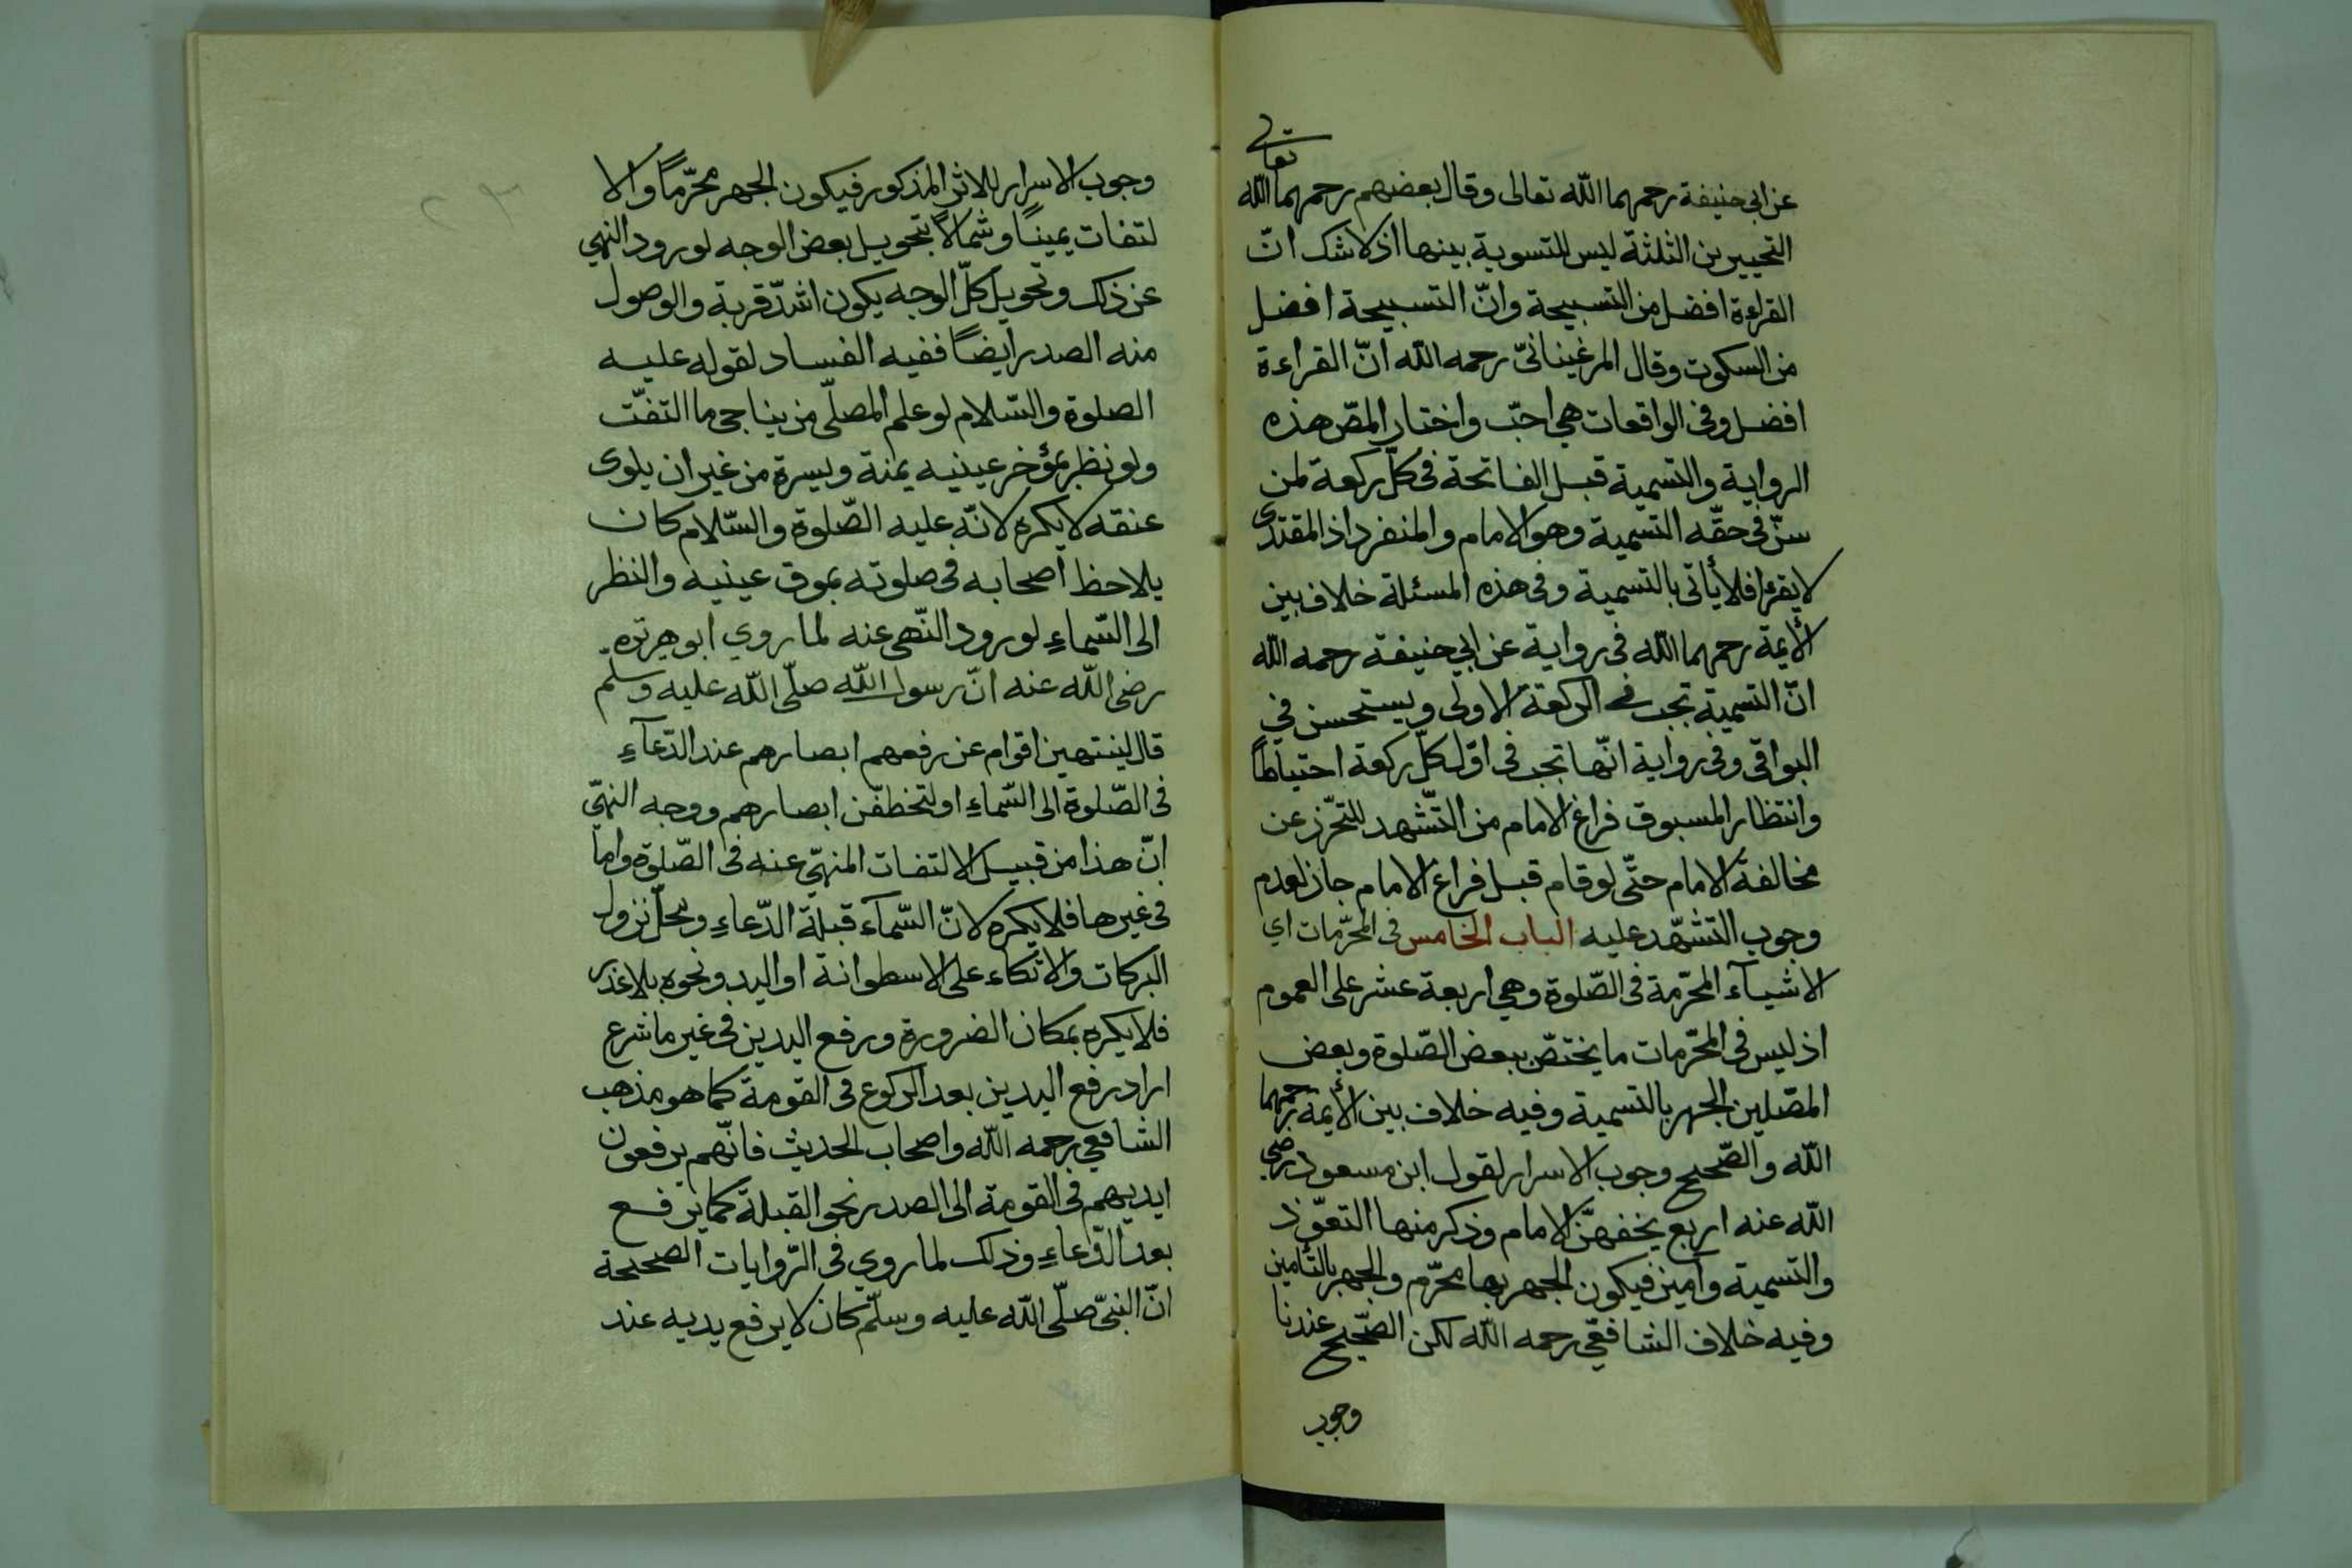 عن ابى حنيفة رحمهما الله تعالى وقال بعضهم رحمهما الله تعالى
التخيير بن الثلثة ليس للتسوية بينها اذ لا شك انّ
القراءة افضل من التسبيحة وانّ التسبيحة افضل
من السكوت وقال المرغينانىّ رحمه الله انّ القراءة
افضل وفى الواقعات هي احبّ واختار المص هذه
الرواية والتسمية قبل الفاتحة فى كلّ ركعة لمن
سنّ فى حقّه التسمية وهو الامام والمنفرد اذ المقتدى
لا يقرء فلا يأتى بالتسمية وفى هذه المسئلة خلاف بين
الأيمة رحمهما الله فى رواية عن ابي حنيفة رحمه الله
انّ التسمية تجب في الركعة الاولى ويستحسن في
البواقى وفى رواية انّها تجب فى اوّل كلّ ركعة احتياطاً
وانتظار المسبوق فراغ الامام من التّشهد للتحّرز عن
مخالفة الامام حتّى لو قام قبل فراغ الامام جاز لعدم
وجوب التشهّد عليه الباب الخامس فى المحرّمات اي
الاشيآء المحرّمة فى الصّلوة وهي اربعة عشر على العموم
اذ ليس فى المحرّمات ما يختصّ ببعض الصّلوة وبعض
المصّلين الجهر بالتسمية وفيه خلاف بين الأيمة رحمهما
الله والصّحيح وجوب الاسرار لقول ابن مسعود رضي
الله عنه اربع يخفهنّ الامام وذكر منها التعوّذ
والتسمية وآمين فيكون الجهر بها محرّم والجهر بالتأمين
وفيه خلاف الشافعّي رحمه الله لكن الصّحيح عندنا
وجوب
وجوب الاسرار للاثر المذكور فيكون الجهر محرّماً والا
لتفات يميناً وشمالاً بتحويل بعض الوجه لورود النهي
عن ذلك وتحويل كلّ الوجه يكون اشدّ قربة والوصول
منه الصدر ايضاً ففيه الفساد لقوله عليه
الصلوة والسّلام لو علم المصلّى من يناجى ما التفّت
ولو نظر بمؤخر عينيه يمنة ويسرة من غير ان يلوى
عنقه لا يكره لانّه عليه الصّلوة والسّلام كان
يلاحظ اصحابه فى صلوته بموق عينيه والنظر
الى السّماءِ لورود النّهى عنه لما روي ابو هريره
رضى الله عنه انّ رسول الله صلّى الله عليه وسلّم
قال لينتهين اقوام عن رفعهم ابصارهم عند الدّعآءِ
فى الصّلوة الى السّماءِ او لتخطفّن ابصارهم ووجه النهّي
انّ هذا من قبيل الالتفات المنهّي عنه فى الصّلوة وامّا
فى غيرها فلا يكره لانّ السّمآء قبلة الدّعاءِ ومحلّ نزول
البركات والاتكاء على الاسطوانة او اليد ونحوه بلا عذر
فلا يكره بمكان الضرورة ورفع اليدين فى غير ما شرع
اراد رفع اليدين بعد الركوع فى القومة كما هو مذهب
الشافعي رحمه الله واصحاب الحديث فانّهم يرفعون
ايديهم فى القومة الى الصدر نحو القبلة كما يرفع
بعد الدّعاءِ وذلك لما روي فى الرّوايات الصحيحة
انّ النبىّ صلّى الله عليه وسلّم كان لا يرفع يديه عند